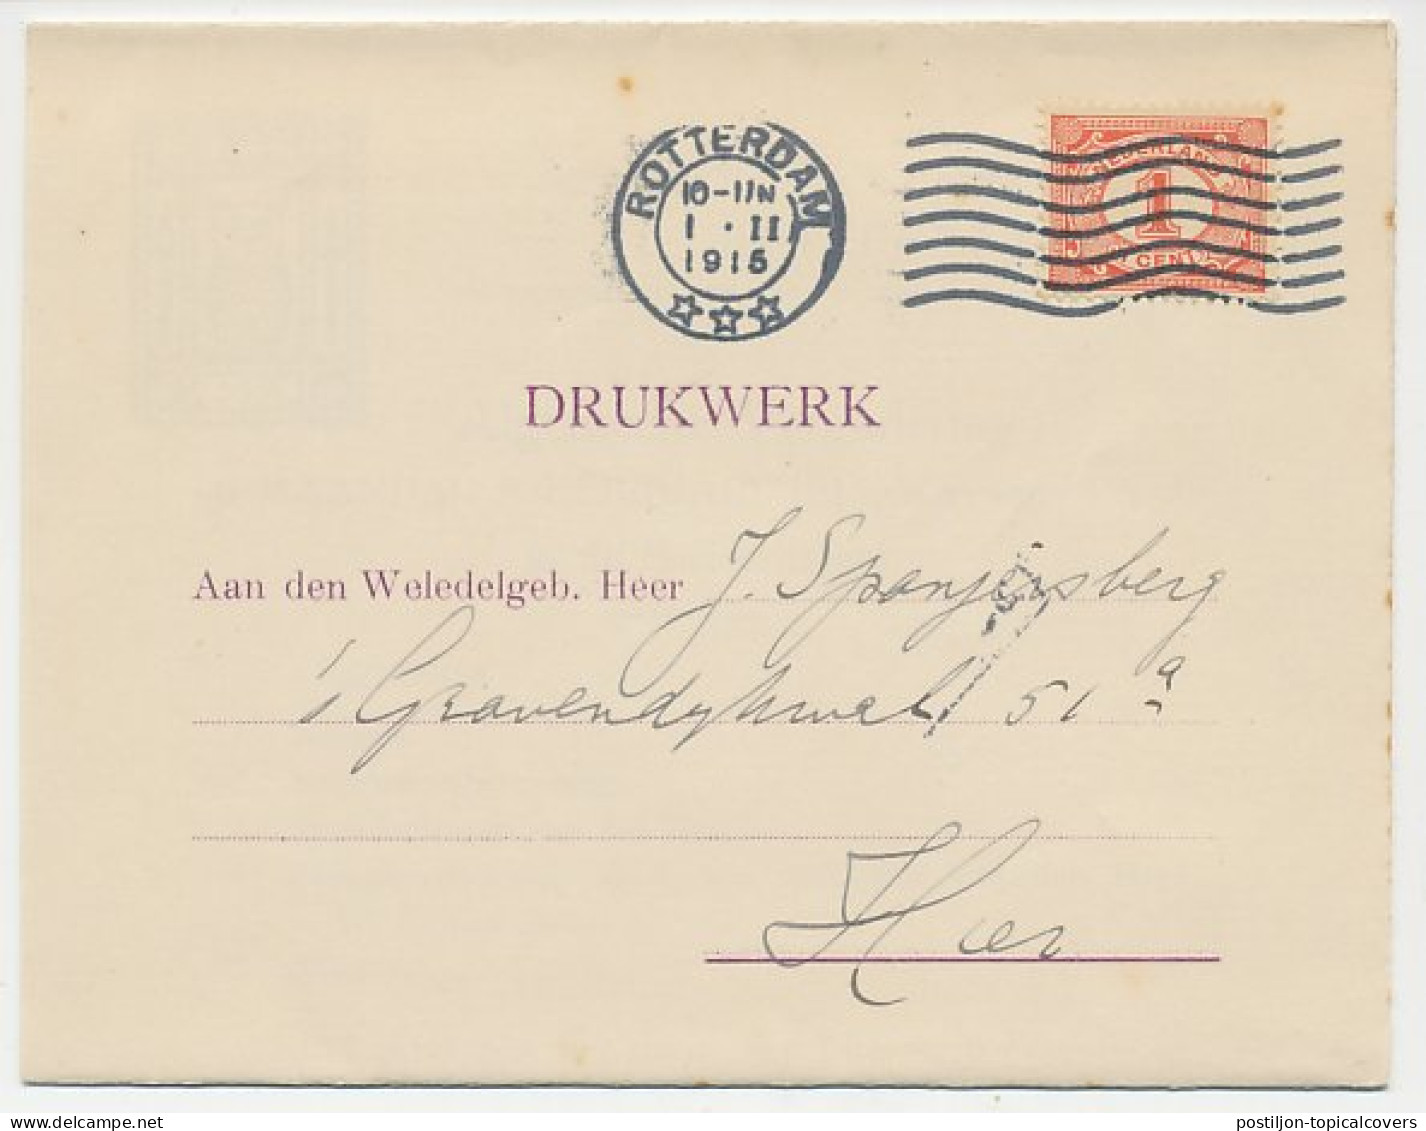 ROTTERDAM
10-11N
1 · II
1915
NEDERLAND
1
CENT
DRUKWERK
Aan den Weledelgeb. Heer J. Spanjersberg
's Gravendykwal 51 a
Hier
postiljon-topicalcovers